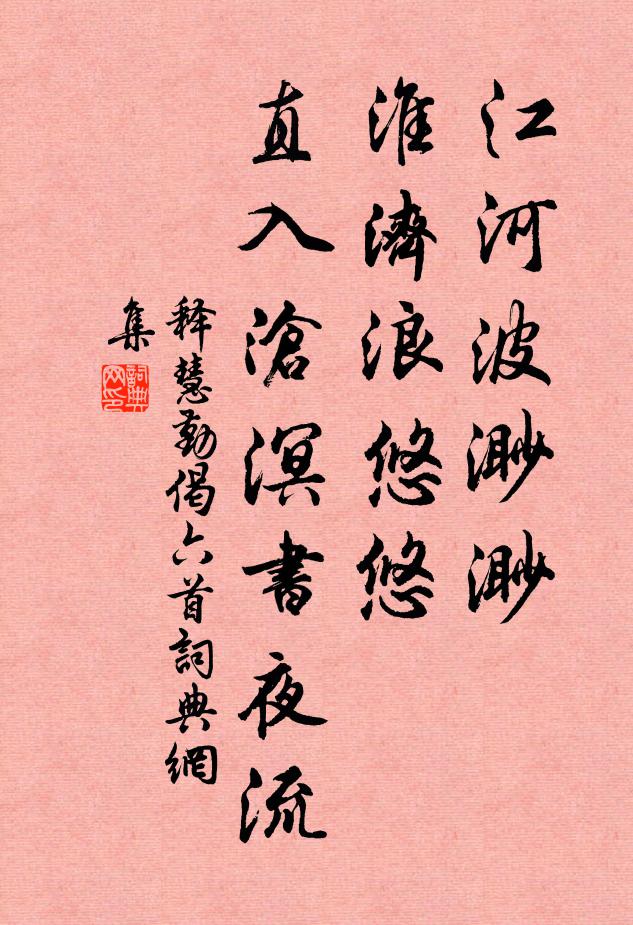 江河波渺渺
淮濟浪悠悠
直入滄溟書夜流
释慧勤偈六首詞典網
集
詞典
网印